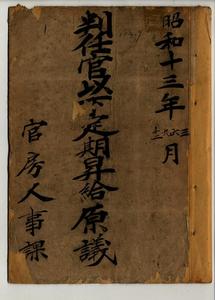 昭和十三年三六九十二月
判任官以下定期昇給原議
官房人事課